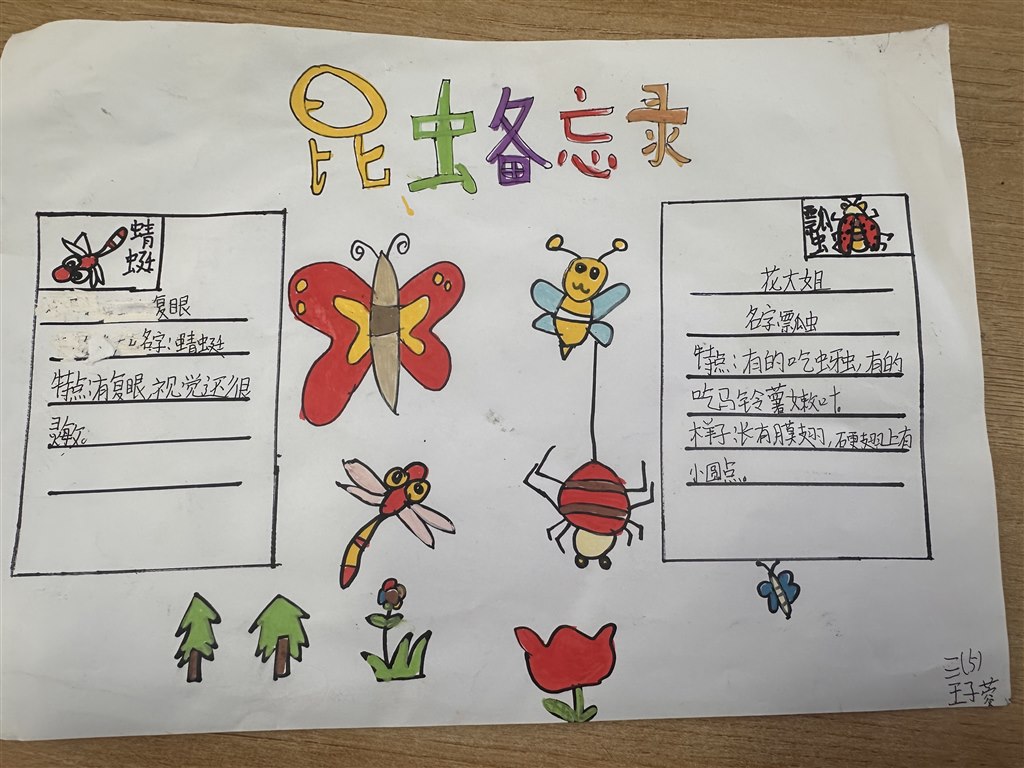 昆虫备忘录
蜻蜓
复眼
名字:蜻蜓
特点:有复眼,视觉还很
灵敏。
瓢虫
花大姐
名字:瓢虫
特点:有的吃蚜虫,有的
吃马铃薯嫩叶。
样子:长有膜翅,硬翅上有
小圆点。
三(5)
王子蓉